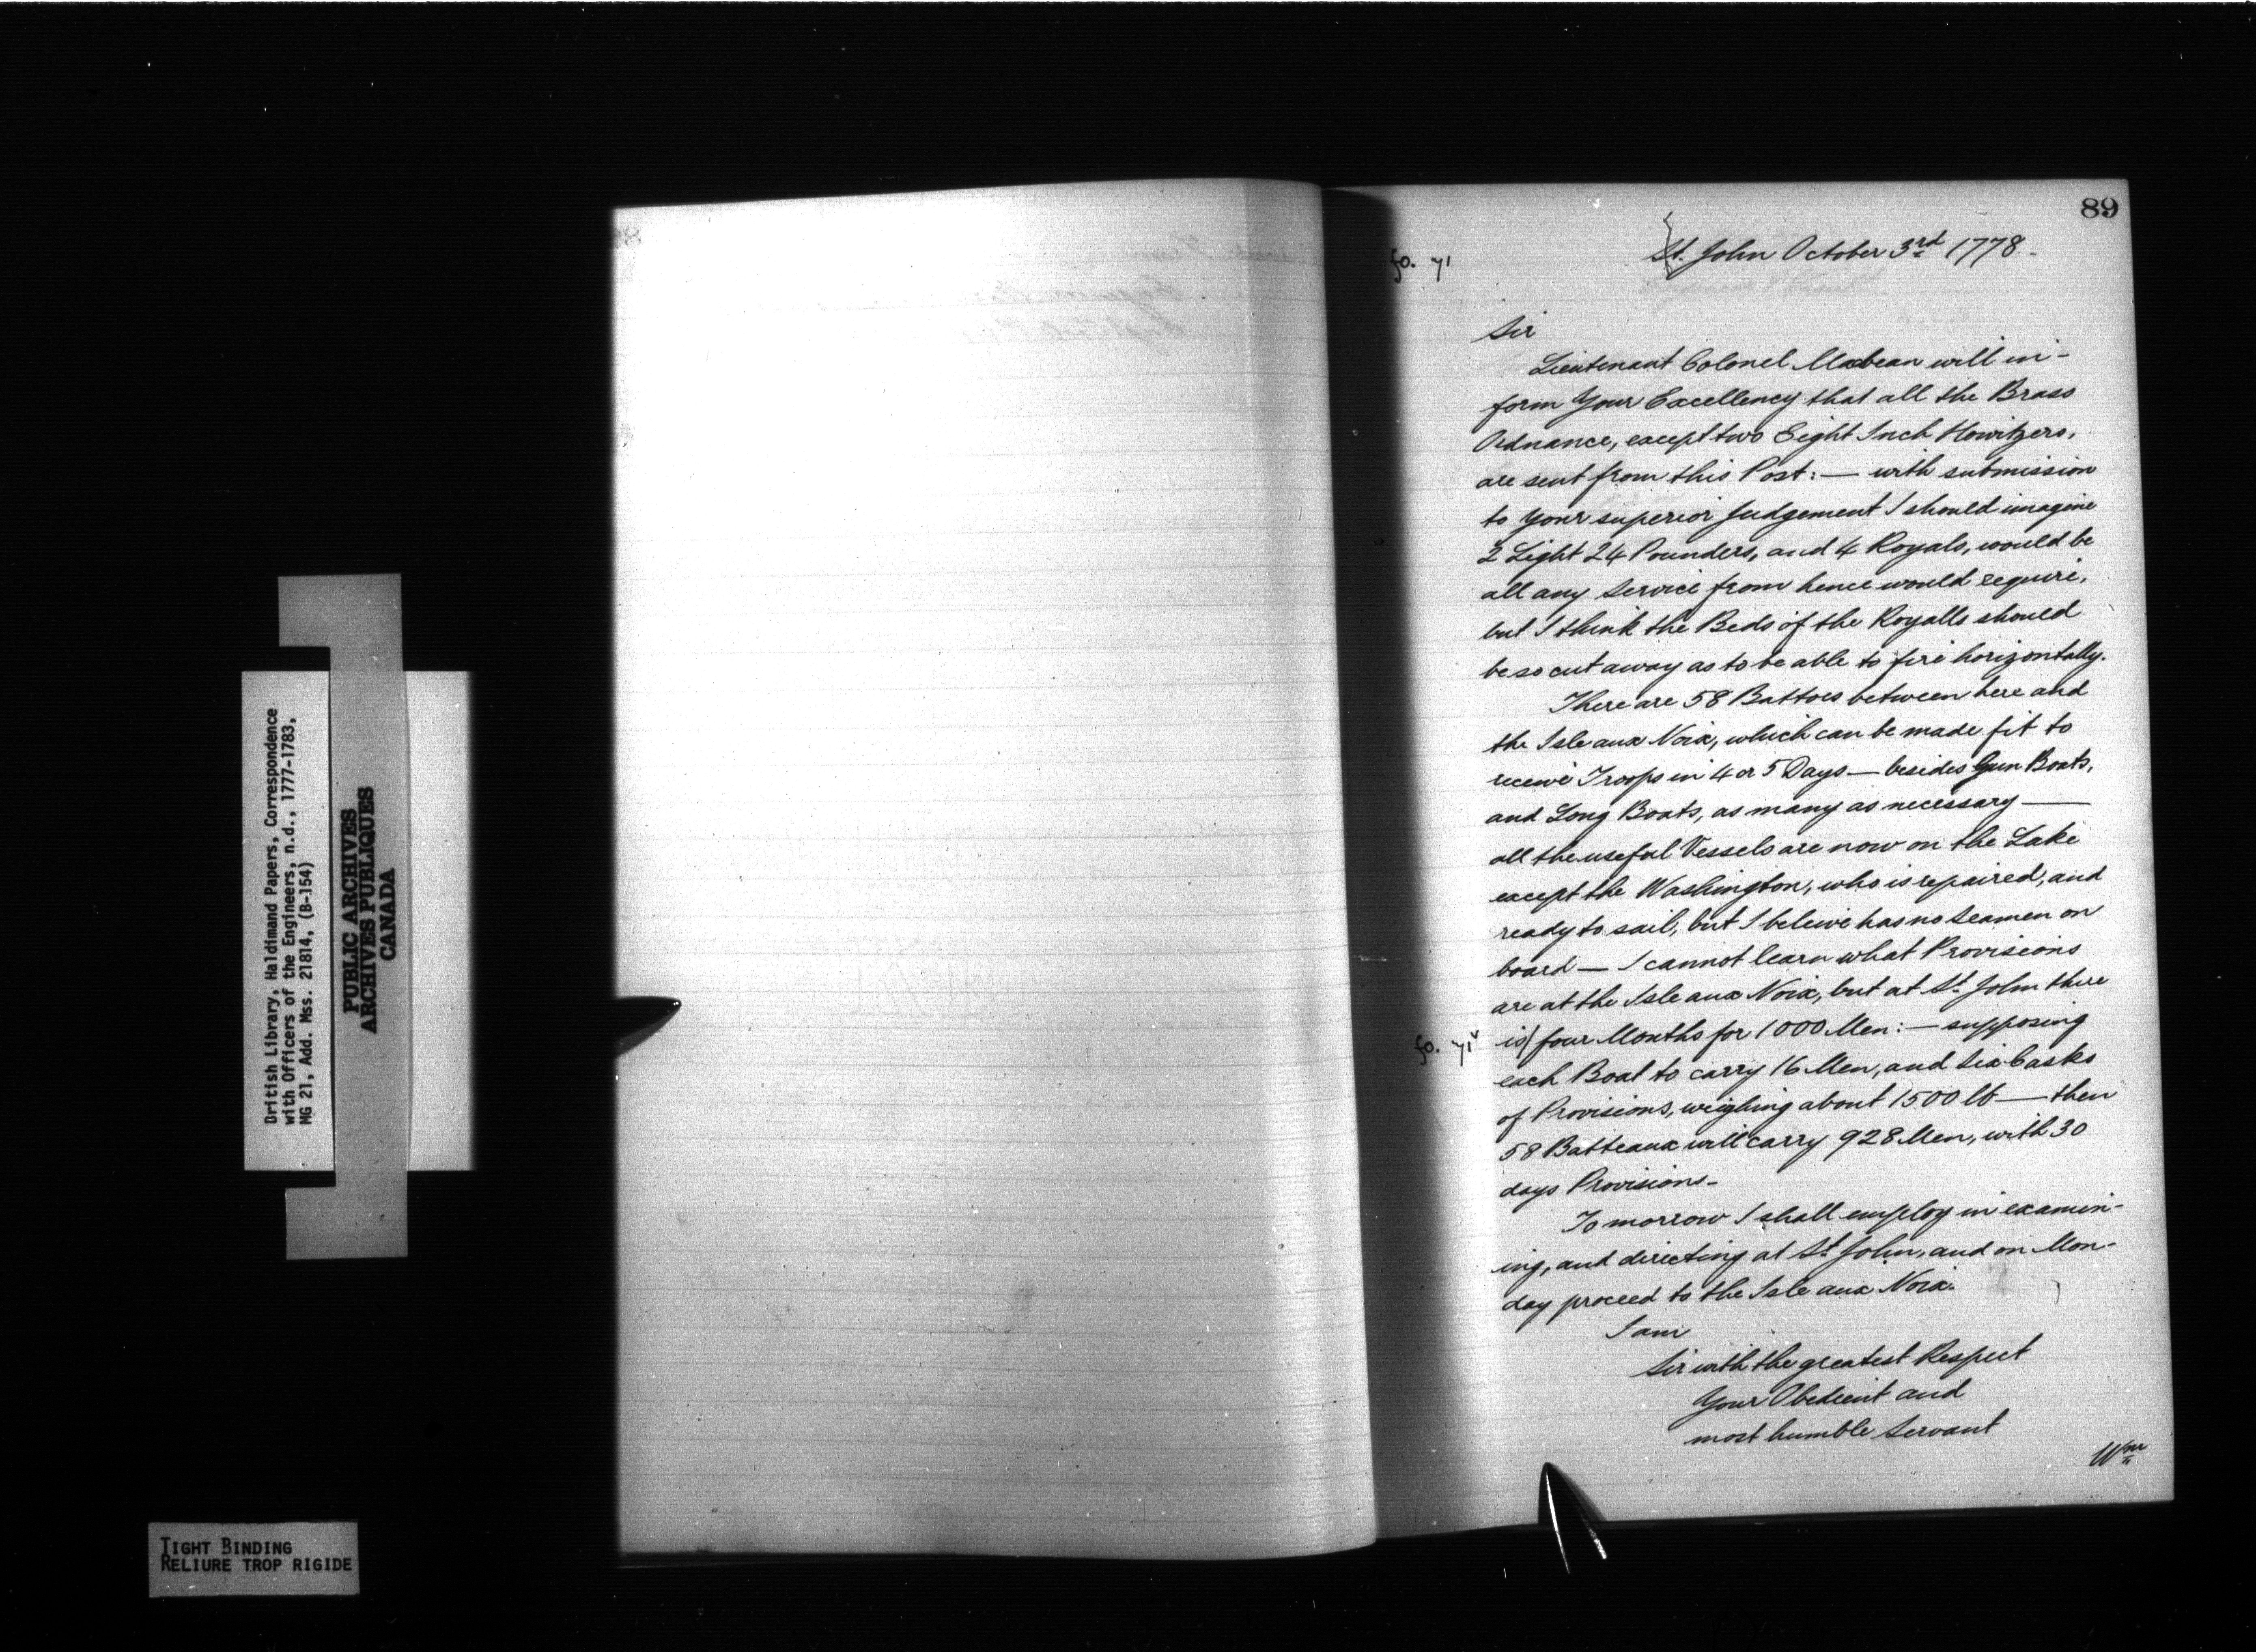 British Library, Haldimand Papers, Correspondence
with Officers of the Engineers, n.d., 1777-1783,
MG 21, Add. Mss. 21814, (B-154)
PUBLIC ARCHIVES
ARCHIVES PUBLIQUES
CANADA
TIGHT BINDING
RELIURE TROP RIGIDE
89
fo. 71
St. John October 3rd 1778 -
Sir
Lieutenant Colonel Macbean will in-
form Your Excellency that all the Brass
Ordnance, except two Eight Inch Howitzers,
are sent from this Post: — with submission
to your superior Judgement I should imagine
2 Light 24 Pounders, and 4 Royals, would be
all any Service from hence would require,
but I think the Beds of the Royalls should
be so cut away as to be able to fire horizontally.
There are 58 Battoes between here and
the Isle aux Noix, which can be made fit to
receive Troops in 4 or 5 Days — besides Gun Boats,
and Long Boats, as many as necessary —
all the useful Vessels are now on the Lake
except the Washington, who is repaired, and
ready to sail, but I beleive has no Seamen on
board — I cannot learn what Provisions
are at the Isle aux Noix, but at St. John there
fo. 71v is/ four Months for 1000 Men: — supposing
each Boat to carry 16 Men, and Six Casks
of Provisions, weighing about 1500 lb — then
58 Batteaux will carry 928 Men, with 30
days Provisions -
To morrow I shall employ in examin-
ing, and directing at St. John, and on Mon-
day proceed to the Isle aux Noix.
I am
Sir with the greatest Respect
Your Obedient and
most humble Servant
Wm